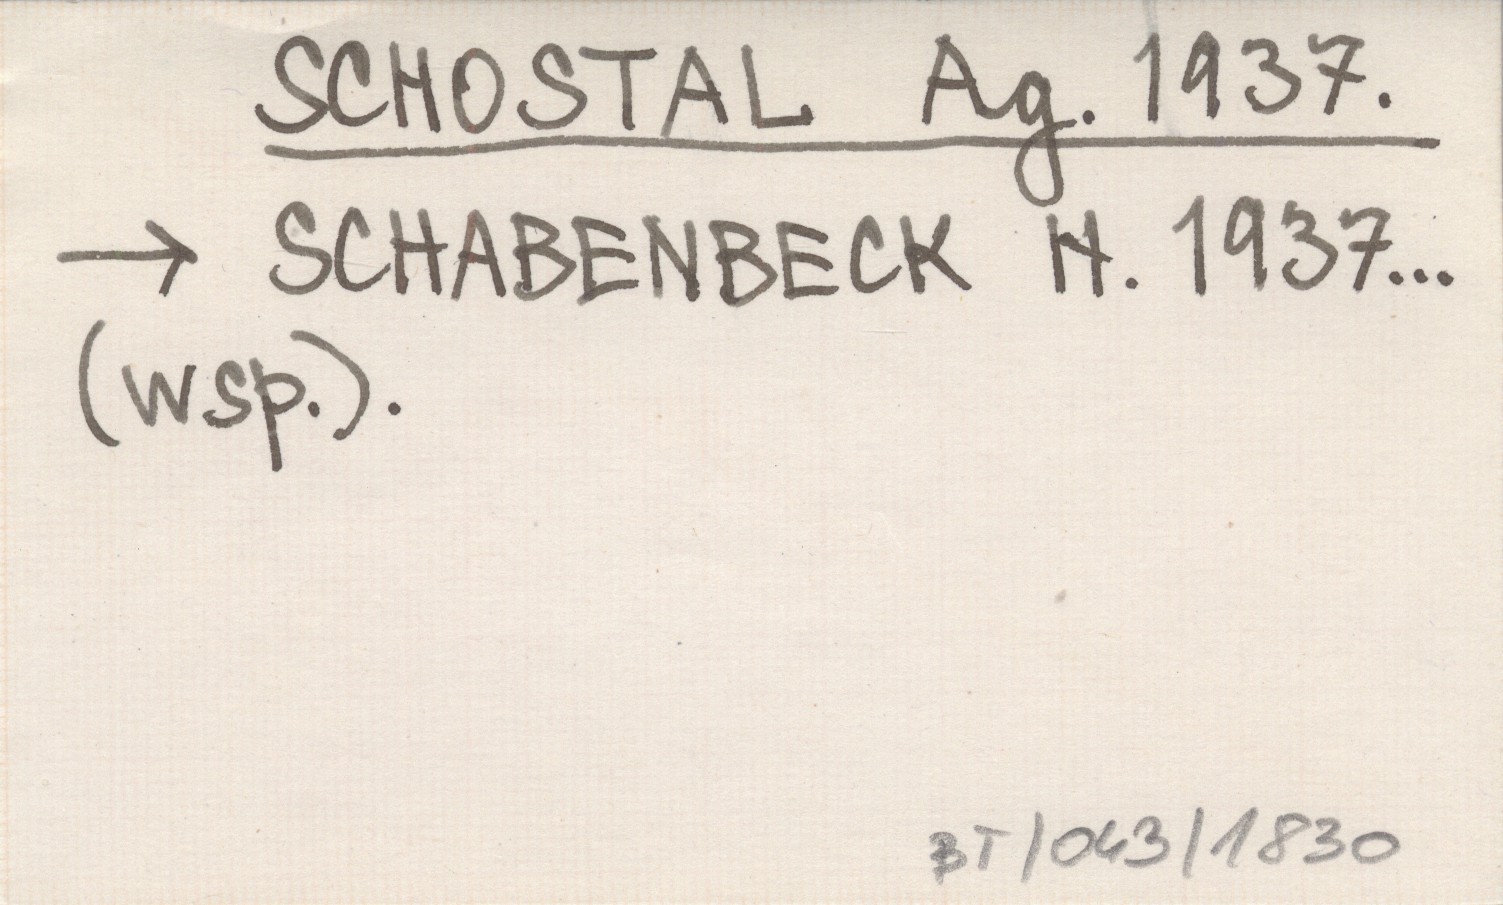 SCHOSTAL Ag. 1937.
→ SCHABENBECK H. 1937...
(wsp.).
BT/043/1830